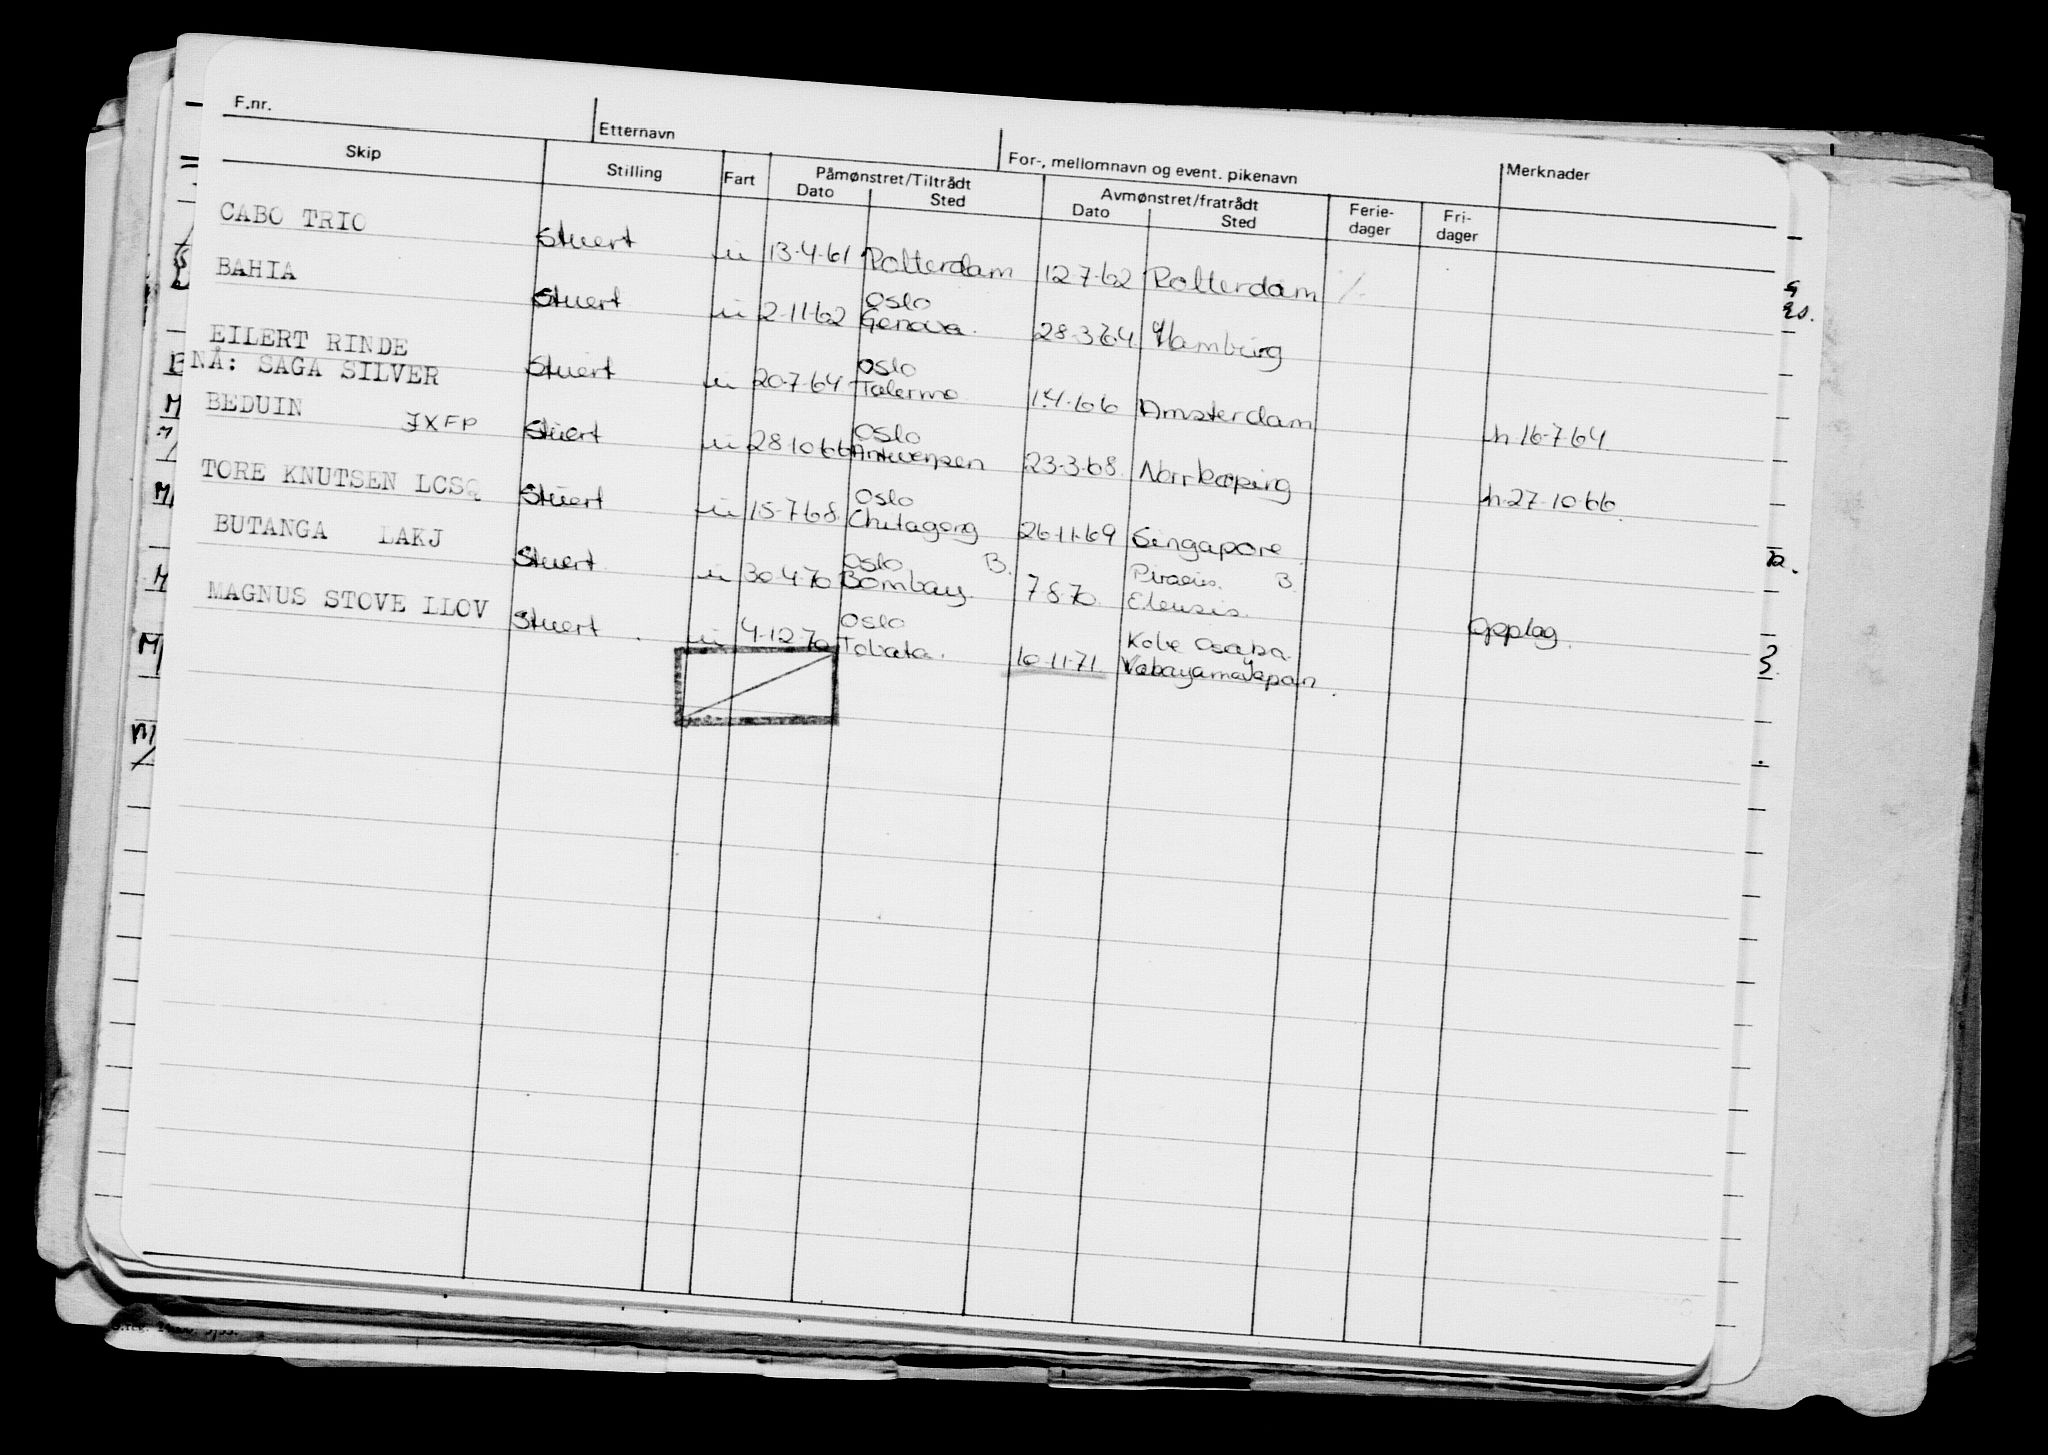 F.nr. Etternavn For-, mellomnavn og event. pikenavn Merknader
Skip Stilling Fart Påmønstret/Tiltrådt Avmønstret/fratrådt Ferie- Fri-
Dato Sted Dato Sted dager dager
CABO TRIO Stuert u 13-4-61 Rotterdam 12-7-62 Rotterdam
BAHIA Stuert u 2-11-62 Oslo
Genova. 28-3-64 Hamburg
EILERT RINDE
NÅ: SAGA SILVER Stuert u 20-7-64 Oslo
Palermo 1-4-66 Amsterdam h 16-7-64
BEDUIN JXFP Stuert u 28-10-66 Oslo
Antwerpen 23-3-68. Norrkøping h 27-10-66.
TORE KNUTSEN LCSQ Stuert u 15-7-68. Oslo
Chitagong 26-11-69 Singapore
BUTANGA LAKJ Stuert u 30-4-70 Oslo B.
Bombay. 7-8-70. Piraeus. B.
Eleusis. Opplag.
MAGNUS STOVE LLOV Stuert. u 4-12-70 Oslo
Tobata. 10-11-71 Kobe Osaka.